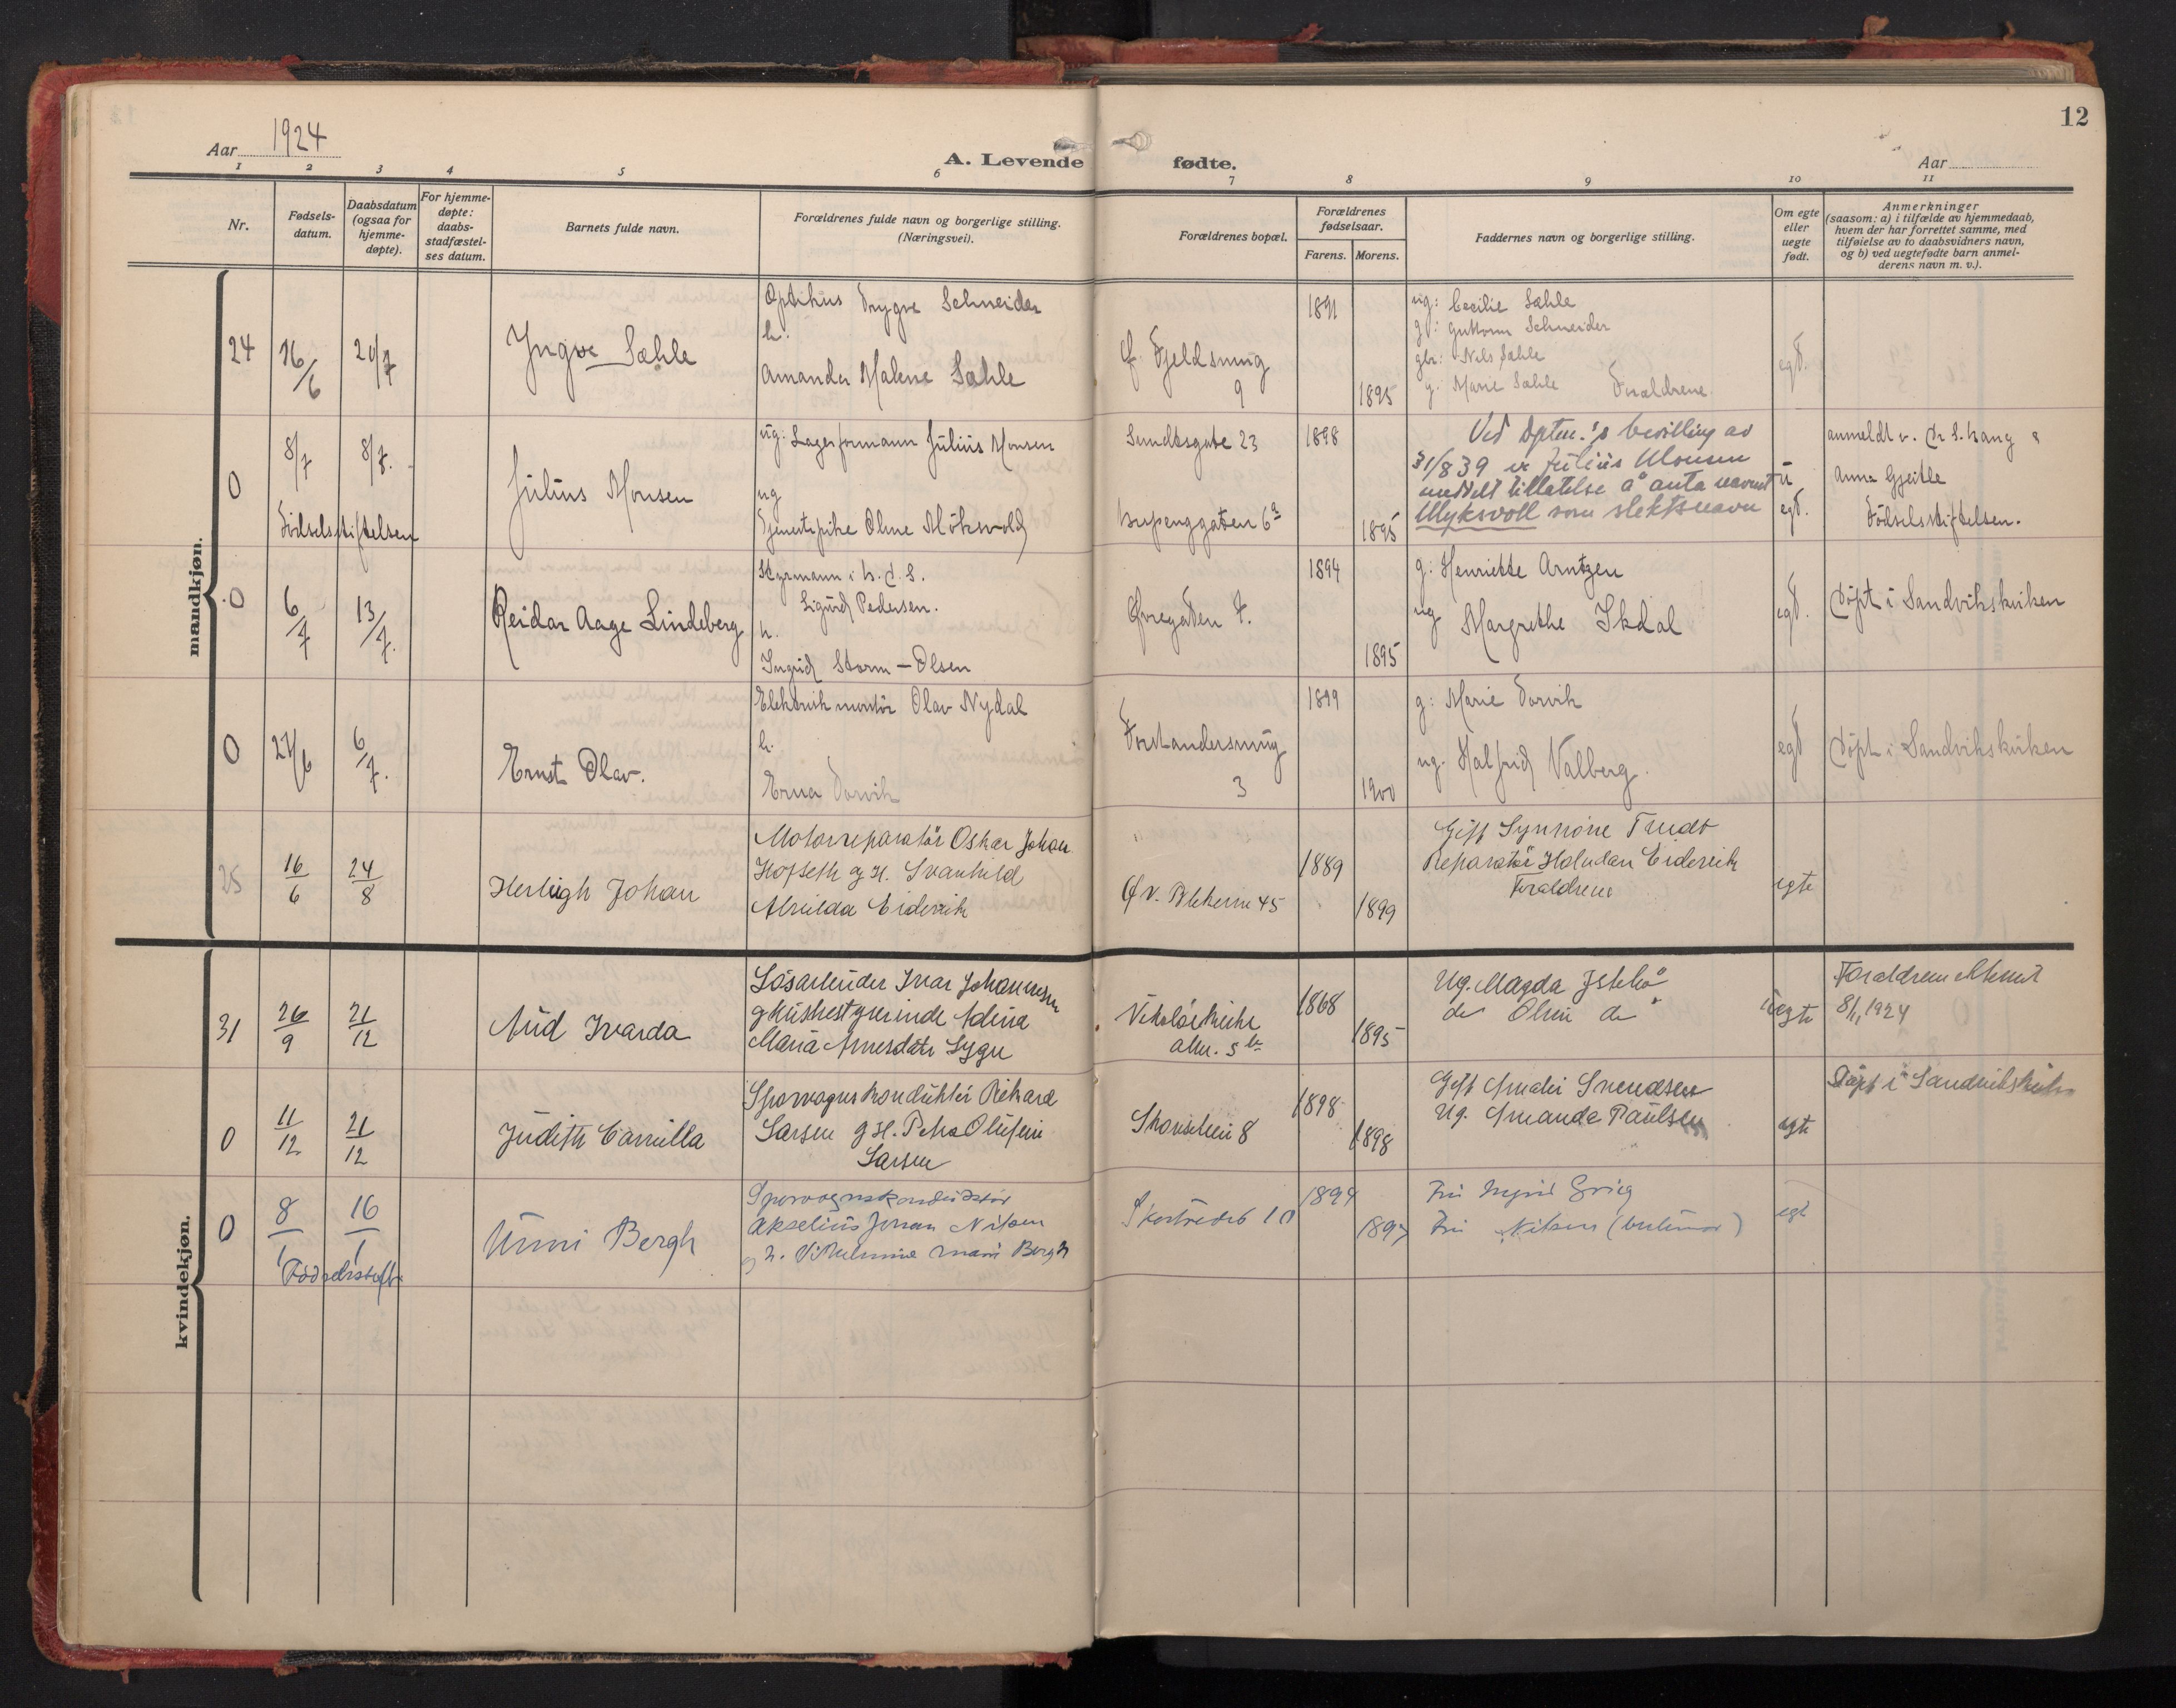 12
Aar 1924
A. Levende fødte.
Aar
1 2 3 4 5 6 7 8 9 10 11
Nr.
Fødsels-
datum.
Daabsdatum
(ogsaa for
hjemme-
døpte).
For hjemme-
døpte:
daabs-
stadfæstel-
ses datum.
Barnets fulde navn.
Forældrenes fulde navn og borgerlige stilling.
(Næringsvei).
Forældrenes bopæl.
Forældrenes
fødselsaar.
Farens. Morens.
Faddernes navn og borgerlige stilling.
Om egte
eller
uegte
født.
Anmerkninger
(saasom: a) i tilfælde av hjemmedaab,
hvem der har forrettet samme, med
tilføielse av to daabsvidners navn,
og b) ved uegtefødte barn anmel-
derens navn m. v.).
mandkjøn.
24
16/6
20/7
Yngve Sæhle
Optikus Trygve Schneider
h.
Amanda Malene Sæhle
Fjeldsmug
9
1891
1895
ug: Cecilie Sæhle
g: Guttorm Schneider
gbr: Nils Sæhle
g. Marie Sæhle Forældrene
egt.
0
8/7
8/7.
Fødselsstiftelsen
Julius Monsen
ug: Lagerformann Julius Monsen
ug
Tjenestepike Oline Møksvold
Sundtsgate 23
6a
1898
1895
Ved Dptm.'s bevilling av
31/8 39 er Julius Monsen
meddelt tillatelse å anta navnet
Myksvoll som slektsnavn
u
egt.
anmeldt v. Dr S. Haug &
Anna Gjeitle
Fødselsstiftelsen.
0
6/7
13/7.
Reidar Aage Lindeberg
Styrmann i B. D. S.
Sigurd Pedersen.
h.
Ingrid Storm-Olsen
Øvregaten 7.
1894
1895
g: Henriette Arntzen
ug Margrethe Ikdal
egt.
Døpt i Sandvikskirken
0
27/6
6/7.
Ernst Olav.
Elektrisk montør Olav Nydal
h.
Erna Torvik
Forstandersmug
3
1899
1900
g: Marie Torvik
ug. Halfrid Valberg.
egt
Døpt i Sandvikskirken
25
16/6
24/8
Herleigh Johan
Motorreparatør Oskar Johan
Hofseth g H. Svanhild
Alvilda Eidevik
Øv. Blekevei 45
1889
1899
Gift Synnøve Tredt
Reparatør Halvdan Eidevik
Forældrene
egte
kvindekjøn.
31
26/9
21/12
Aud Ivarda
Løsarbeider Ivar Johannesen
g Husbestyrerinde Adina
Maria Arnesdatr Lygre
Nikolaikirke
alm. 5 b
1868
1895
Ug. Magda
do Olsen do
uegte
Forældrene
8/1, 1924
0
11/12
21/12
Judith Camilla
Sporvognskonduktør Rikard
Larsen g H. Petra Olufine
Larsen
Skanselien 8
1898
1898
Gift Amalie Svendsen
Ug. Amanda Paulsen
egte
Døpt i Sandvikskirken
0
8/1
16/1
Fødselsstift.
Unni Bergh
Sporvognskonduktør
Akselius Johan Nilsen
g h. Vilhelmine Marie Bergh
Skostrædet 10
1894
1897
Fru Ingrid Grieg
Fru Nilsen (bestemor)
egt